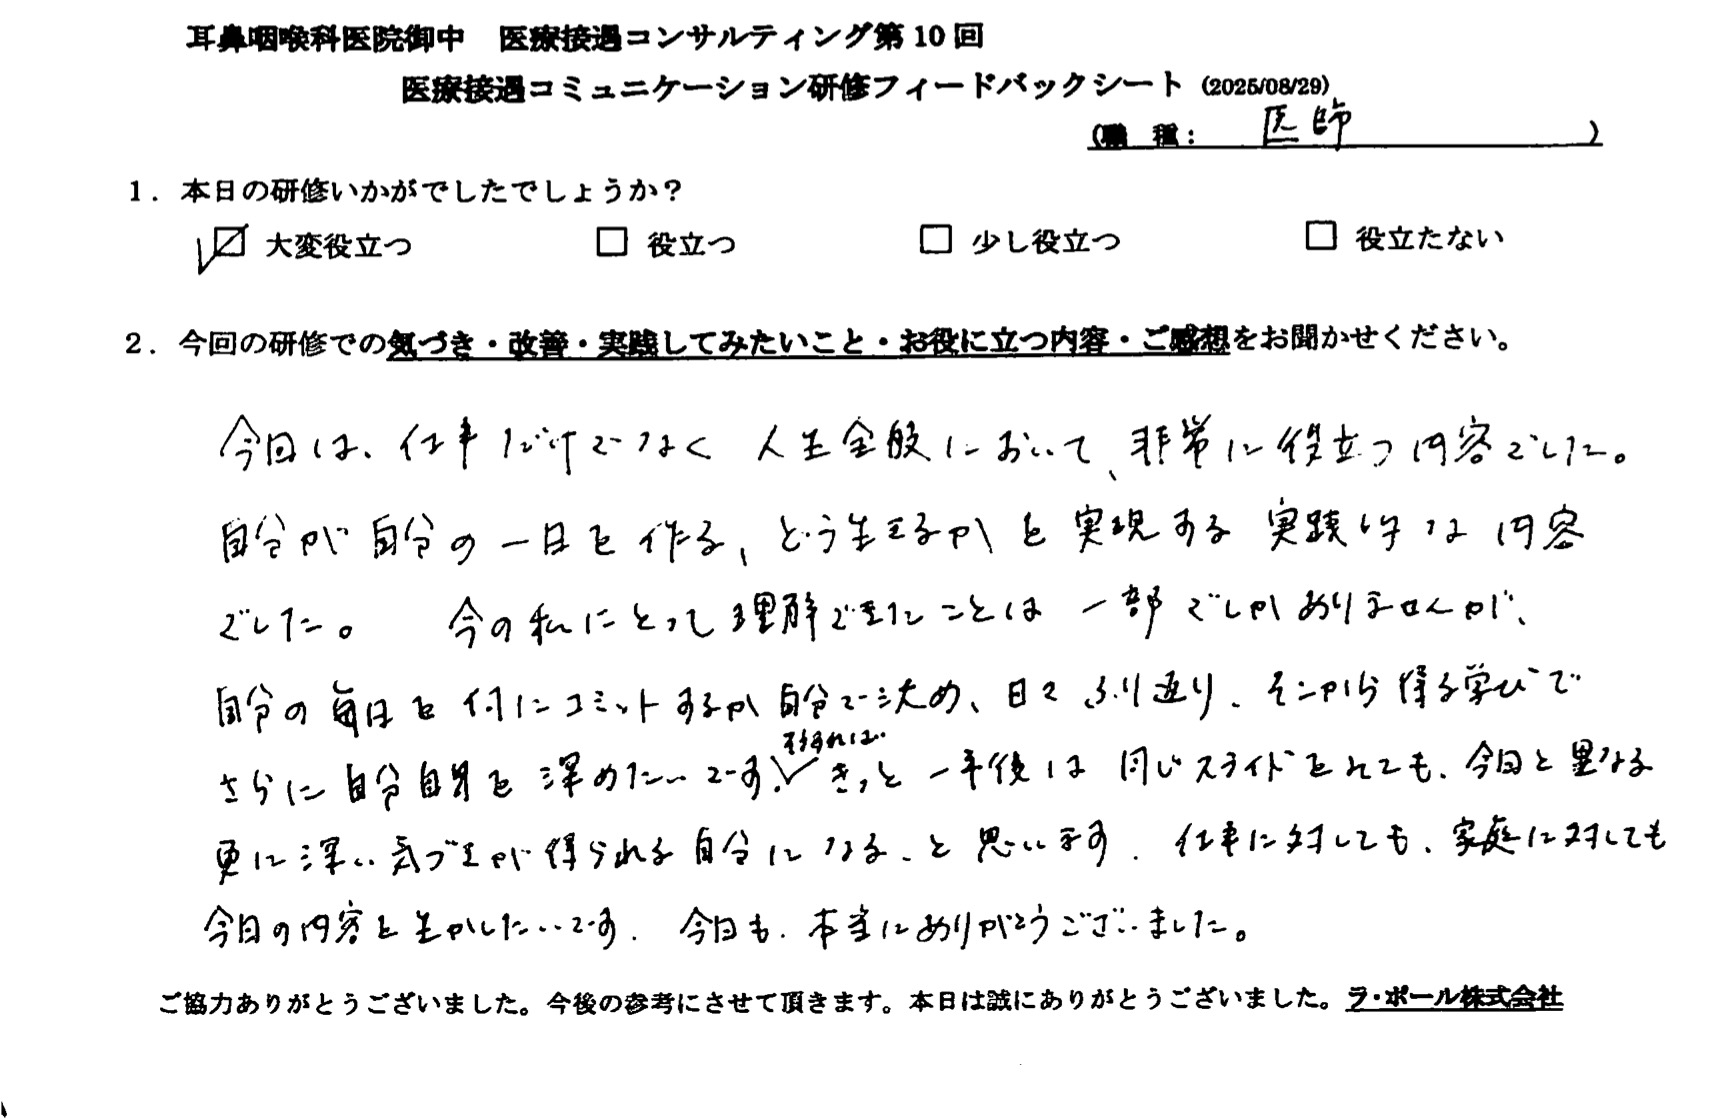 耳鼻咽喉科医院御中　医療接遇コンサルティング第10回
医療接遇コミュニケーション研修フィードバックシート (2025/08/29)
(職　種：　医師　)
1．本日の研修いかがでしたでしょうか？
☑ 大変役立つ　□ 役立つ　□ 少し役立つ　□ 役立たない
2．今回の研修での気づき・改善・実践してみたいこと・お役に立つ内容・ご感想をお聞かせください。
今日は、仕事だけでなく人生全般において、非常に役立つ内容でした。
自分が自分の一日を作る、どう生きるかを実現する実践的な内容
でした。　今の私にとって理解できたことは一部でしかありませんが、
自分の毎日を何にコミットするか自分で決め、日々ふり返り、そこから得る学びで
さらに自分自身を深めたいです。そうすれば きっと一年後は同じスライドをみても、今日と異なる
更に深い気づきが得られる自分になる、と思います．仕事に対しても、家庭に対しても
今日の内容を生かしたいです．今日も、本当にありがとうございました。
ご協力ありがとうございました。今後の参考にさせて頂きます。本日は誠にありがとうございました。ラ・ポール株式会社